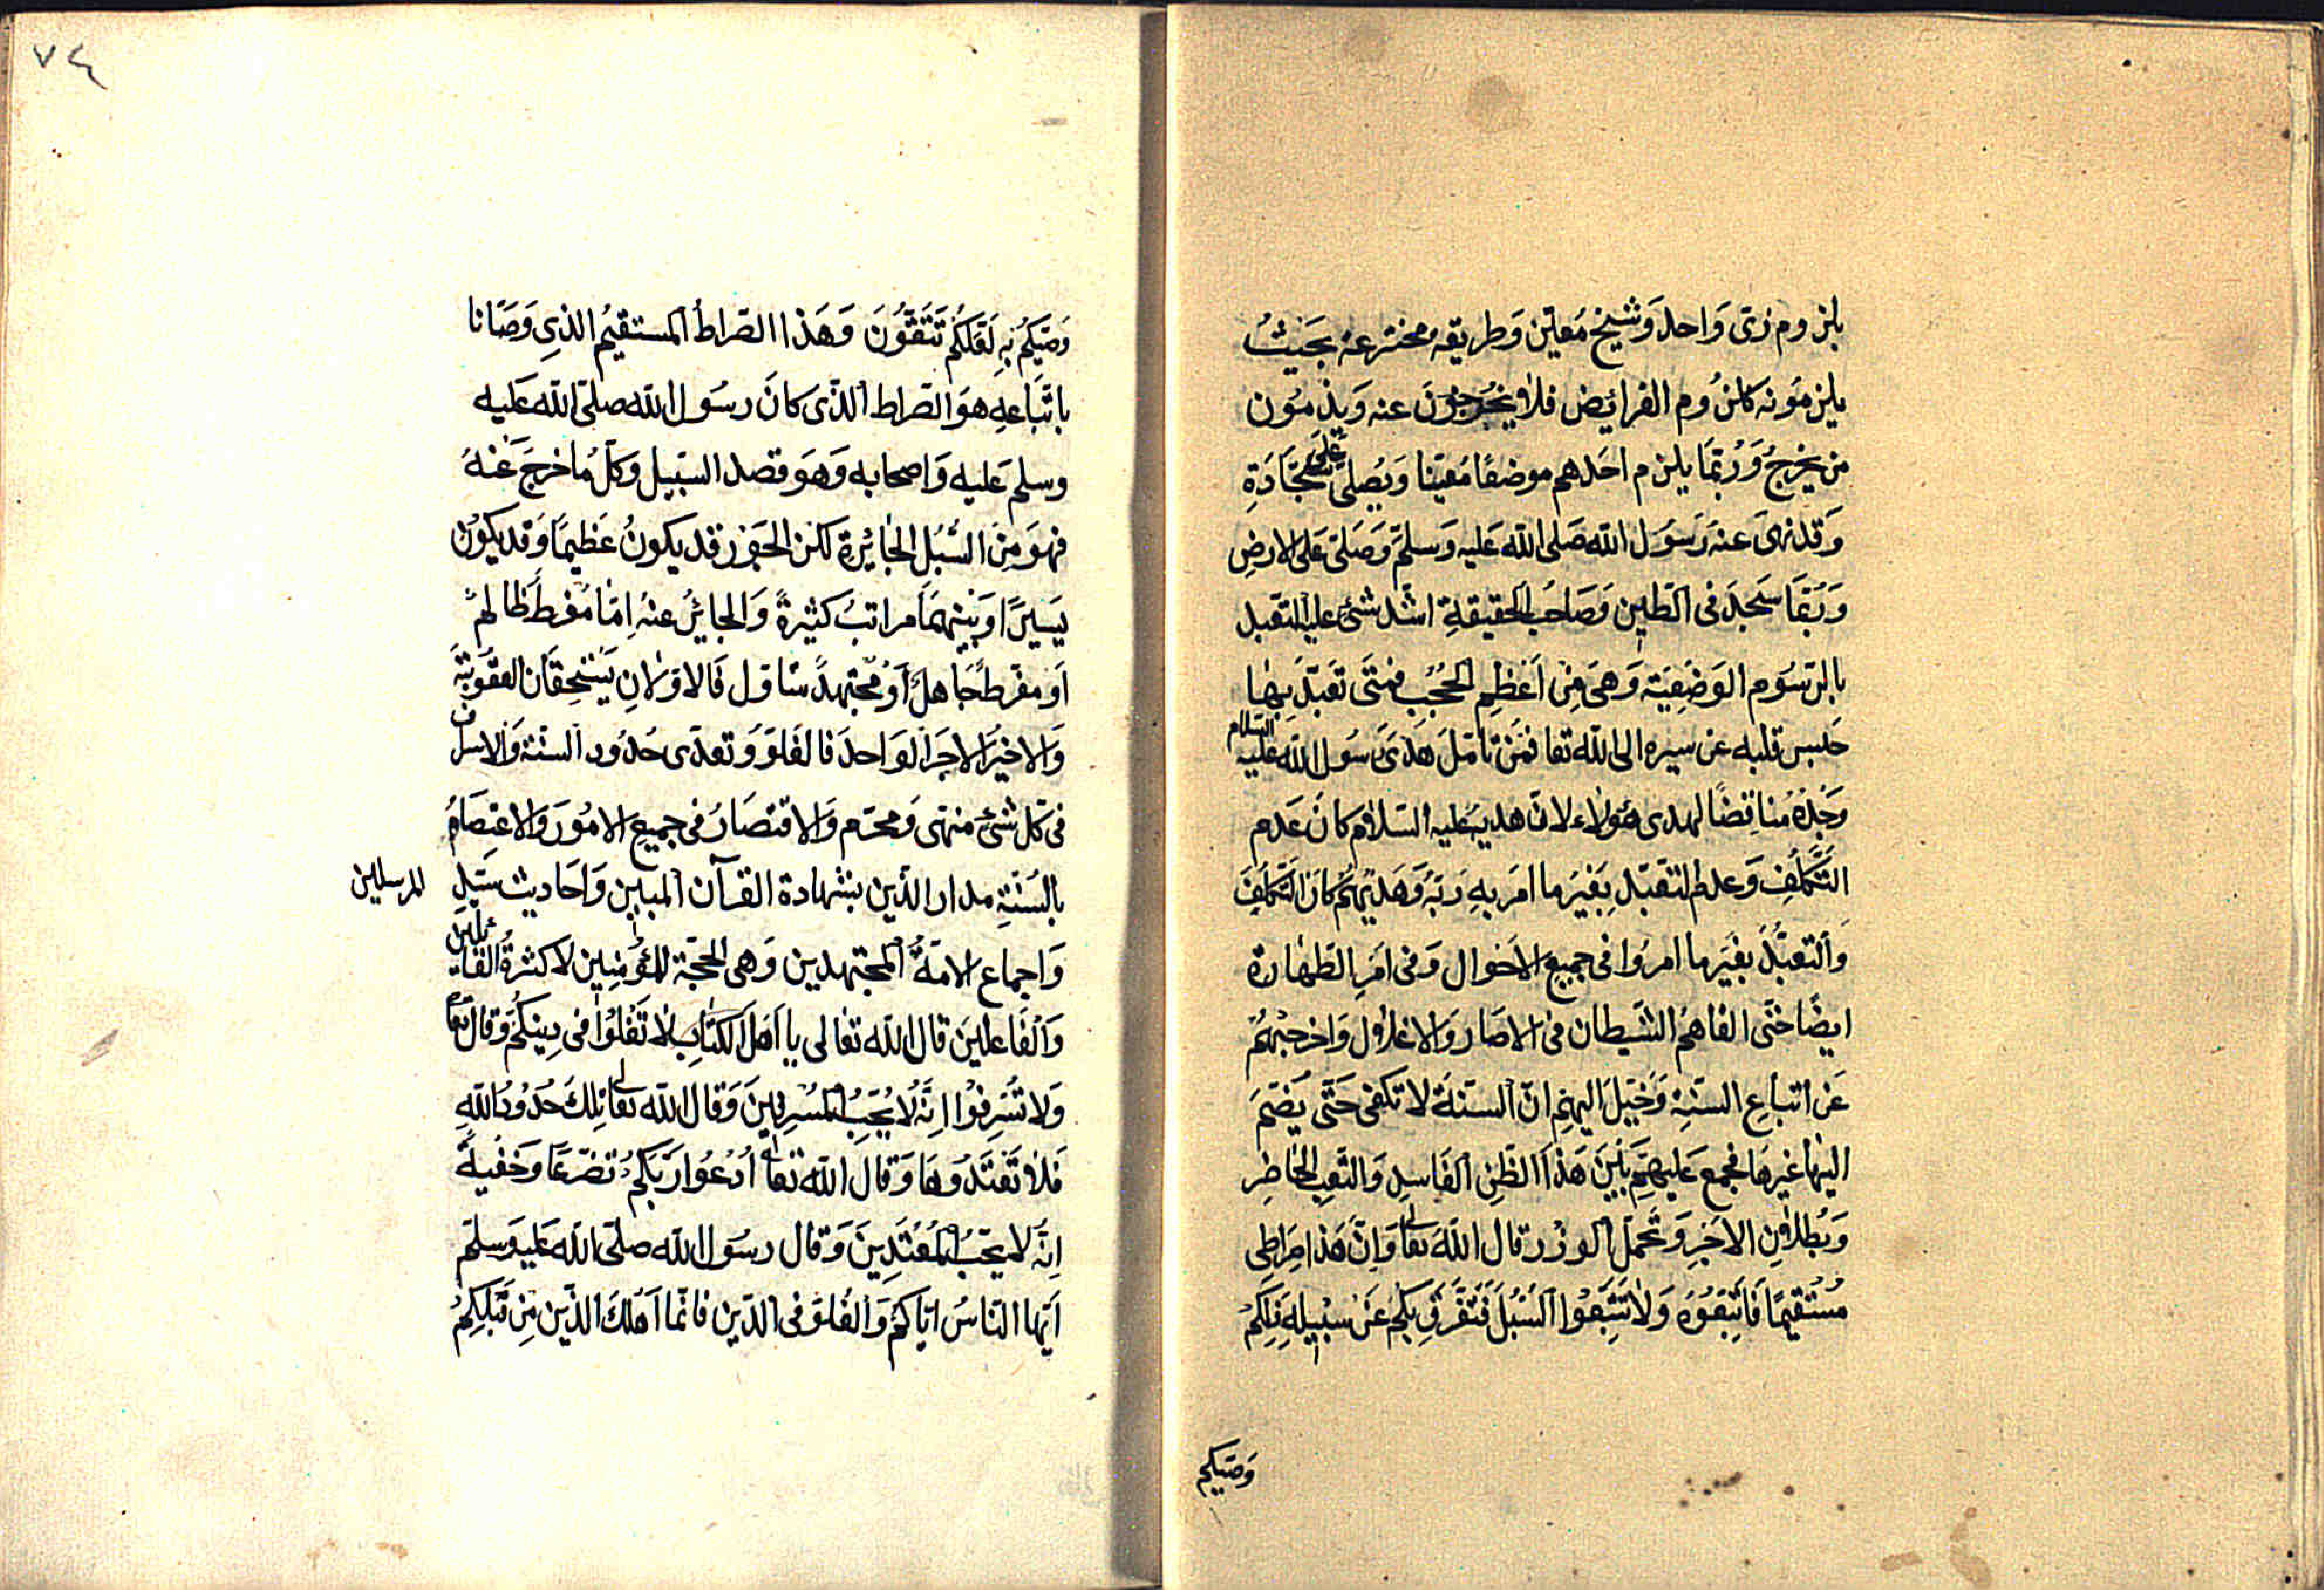 بلزوم زى وَاحد وَشيخ مَعيّن وَطريقه مخترعه بحَيثُ
يلزمُونه كلزُوم الفرائض فلا يخرجُونَ عنه وَيذمّون
من يخرجُ وَرُبّمَا يلزم احَدهم موضعًا مُعيّنا وَيُصلى عَلى سَجّادَةِ
وَقد نهىَ عنه رَسَول الله صَلى الله عَليه وَسلمّ وَصَلّى عَلى الارضِ
وَرُبّمَا سَجدَ فى الطين وَصَاحبُ الحقيقةِ اشد شئ عليه التعّبد
بالرّسُوم الوَضعِيّة وَهىَ مِن اَعْظِم الحُجُبِ فمتَى تَعَبّدَ بهَا
حَبس قلبه عن سيره الى الله تعا فمَن تأمّلَ هَدْىَ رَسُول الله عليه السلام
وَجَدهُ مُناقِضًا لهدى هٰؤلاء لانّ هديه عليه السّلام كانَ عَدم
التّكلّف وَعدم التعَبّد بِغَيرِ ما امرَ بهِ رَبّهُ وَهَديُهُم كانَ التّكلّفَ
وَالتّعَبُّدَ بغَيرِ ما امرُوا فى جميعِ الاحوال وَفى امَرِ الطّهَارة
ايضًا حَتّى القاهُمُ الشّيطان فى الاصَار وَالاغلاول وَاخرجهُم
عَن اتباعِ السّنّةِ وَخَيّلَ اليهِم انّ السّنةَ لا تكفى حَتّى يضَمّ
اليهَا غيرهَا فجمع عَليهِم بَينَ هَذا الظّنِ الفَاسِدِ وَالتّعبِ الحَاضِرِ
وَبُطلاونِ الاجَرِ وَتَحَمّل الوِزْر قال اللهَ تعالى وَانّ هَذا صِرَاطِى
مُسْتقيمًا فَاتّبعُوْهُ وَلا تَتّبِعُوا السُّبُلَ فَتَفَرّقَ بِكُم عَنْ سَبِيلِهِ ذٰلِكُمْ
وَصّيكم
٧٤
وَصّيكُم بِهِ لَعَلّكُمْ تَتّقُونَ وَهَذا الصّراطُ المستقيمُ الذِى وَصّانا
باتّبَاعهِ هوَ الصّراط الذّى كانَ رسُول الله صلىّ الله عَليه
وسلم عَليه وَاصحابه وَهوَ قصد السّبيل وَكلّ مَا خرجَ عَنهُ
فهوَ مِنَ السُّبُل الجَائِرة لكن الجوَر قد يكونُ عَظيمًا وَقد يكوُن
يَسيرًا وَبَينهمَا مراتبُ كثيرةً وَالجائرُ عنهُ اِمّا مُفرطٌ ظالمٌ
اَو مفرطٌ جَاهلٌ اَوْ مُجتهدٌ متاوّل فَالاوّلانِ يَستحِقّان العقوبَة
وَالاخيرُ الاجرَ الوَاحدَ فالغلوّ وَتعدّى حُدُود السنّة وَالاسراف
فى كلّ شئ منهى وَمحرّم وَالاقتصَارُ فى جميعِ الامُورَ وَالاعتِصَامُ
بالسّنّةِ مدار الدّين بشهادة القرآن المبين وَاحَاديث سَيّدِ المرسلين
وَاجماع الامةُ المجتهدين وَهى الحجّة للمؤمِنِين لا كثرةُ القائلين
وَالفَاعلينَ قال الله تعَالى يا اَهلَ الكتَابِ لا تَغْلُوا فى دِينِكُمْ وَقال تعا
وَلا تُسْرِفوْا اِنّهُ لا يُحِبُّ المسُرِفينَ وَقالَ الله تعالى تِلكَ حُدُودُ اللهِ
فَلا تَعْتَدُوهَا وَقالَ اللهَ تعالى ادْعُوا رَبّكُمْ تضرّعًا وَخُفيةً
اِنّهُ لا يحِبّ المُعْتَدِينَ وَقال رسُول الله صلىّ الله عَليهِ وَسلّم
ايّها النّاسُ ايّاكُمْ وَالغُلوَّ فى الدّين فانّما اَهْلكَ الذّينَ مِن قَبلِكُمْ